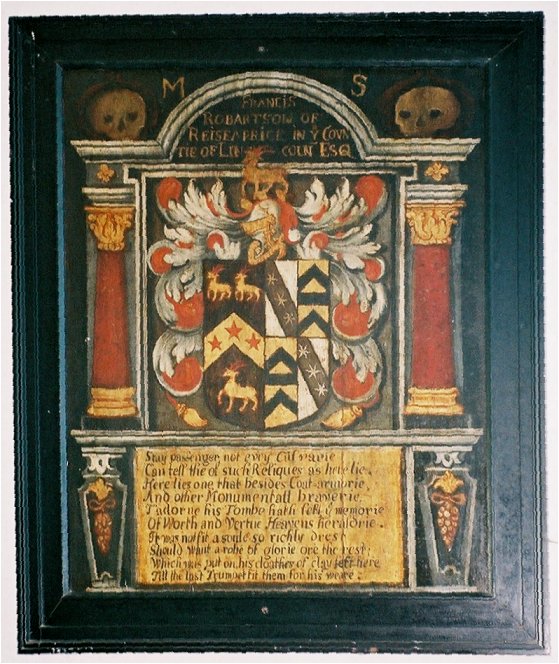 M S
FRANCIS
ROBARTSON OF
REISEAPRICE IN Ẏ COVN
TIE OF LIN COLN ESQ
Stay passenger, not evry
Can tell the of such Reliques as here lie.
Here lies one that besides Coat-armorie,
And other Monumentall braverie,
T'adorne his Tombe hath left ẏ memorie
Of Worth and Vertue Heavens heraldrie.
It was not fit a soule so richly drest
Should want a robe of glorie ore the rest;
Which was put on, his cloathes of clay left here
Till the last Trumpet fit them for his weare.